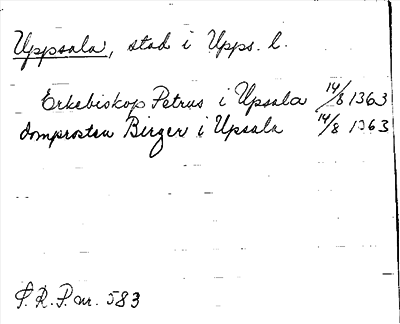 Uppsala, stad i Upps. l.
Erkebiskop Petrus i Upsala 14/8 1363
domprosten Birger i Upsala 14/8 1363
P. R. P. nr. 583